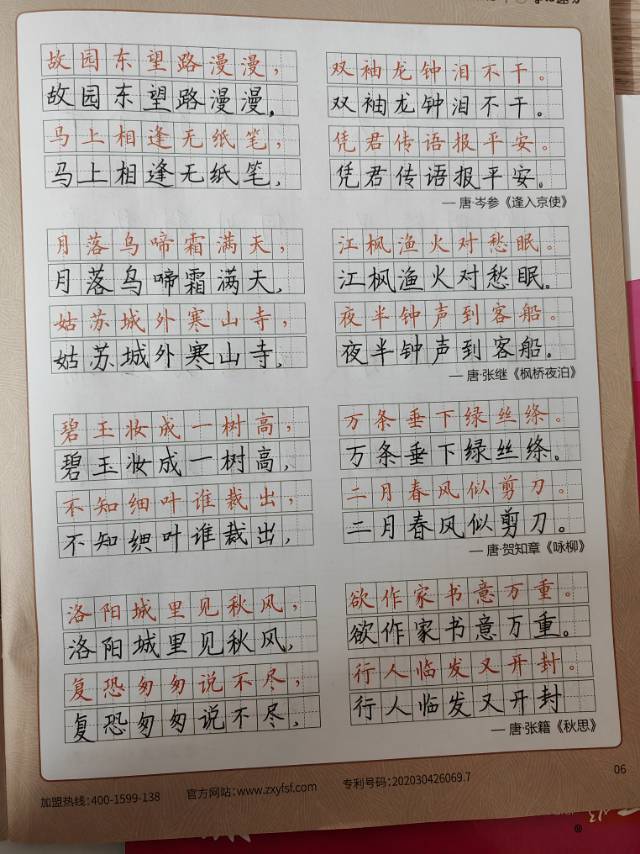 故园东望路漫漫，
故园东望路漫漫，
双袖龙钟泪不干。
双袖龙钟泪不干。
马上相逢无纸笔，
马上相逢无纸笔，
凭君传语报平安。
凭君传语报平安。
— 唐·岑参《逢入京使》
月落乌啼霜满天，
月落乌啼霜满天，
江枫渔火对愁眠。
江枫渔火对愁眠。
姑苏城外寒山寺，
姑苏城外寒山寺，
夜半钟声到客船。
夜半钟声到客船。
— 唐·张继《枫桥夜泊》
碧玉妆成一树高，
碧玉妆成一树高，
万条垂下绿丝绦。
万条垂下绿丝绦。
不知细叶谁裁出，
不知细叶谁裁出，
二月春风似剪刀。
二月春风似剪刀。
— 唐·贺知章《咏柳》
洛阳城里见秋风，
洛阳城里见秋风，
欲作家书意万重。
欲作家书意万重。
复恐匆匆说不尽，
复恐匆匆说不尽，
行人临发又开封。
行人临发又开封
— 唐·张籍《秋思》
06
加盟热线：400-1599-138 官方网站：www.zxyfsf.com 专利号码：202030426069.7